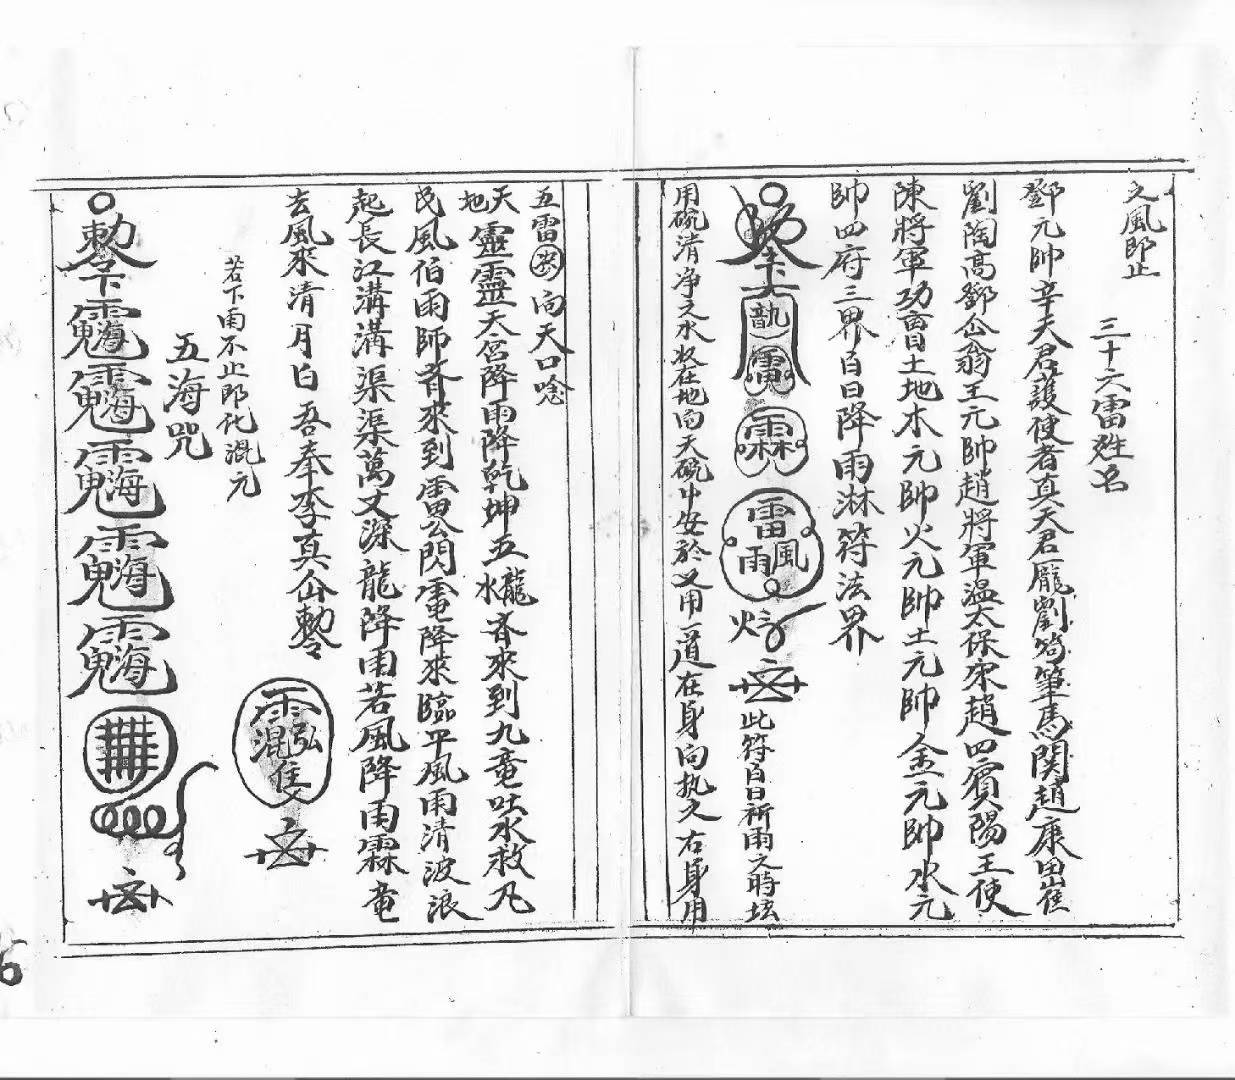 之風即止
三十六雷姓名
鄧元帥辛天君護使者真天君龐劉茍筆馬関趙康田崔
劉陶高鄧仚翁王元帥趙將軍温太保宋趙四賔陽王使
陳將軍功曹土地木元帥火元帥土元帥金元帥水元
帥四府三界百日降雨淋符法界
此符百日祈雨之時坛
用碗清净之水放在地向天碗中安於又用一道在身向执之右身用
五雷向天口唸
天地靈靈天宮降雨降乾坤五龍水齐來到九竜吐水救凡
民風伯雨師齐來到雷公閃電降來臨平風雨清波浪
起長江溝溝渠渠萬丈深龍降雨若風降雨霖竜
去風來清月白吾奉李真仚勅令
若下雨不止即化混元
五海咒
勅令